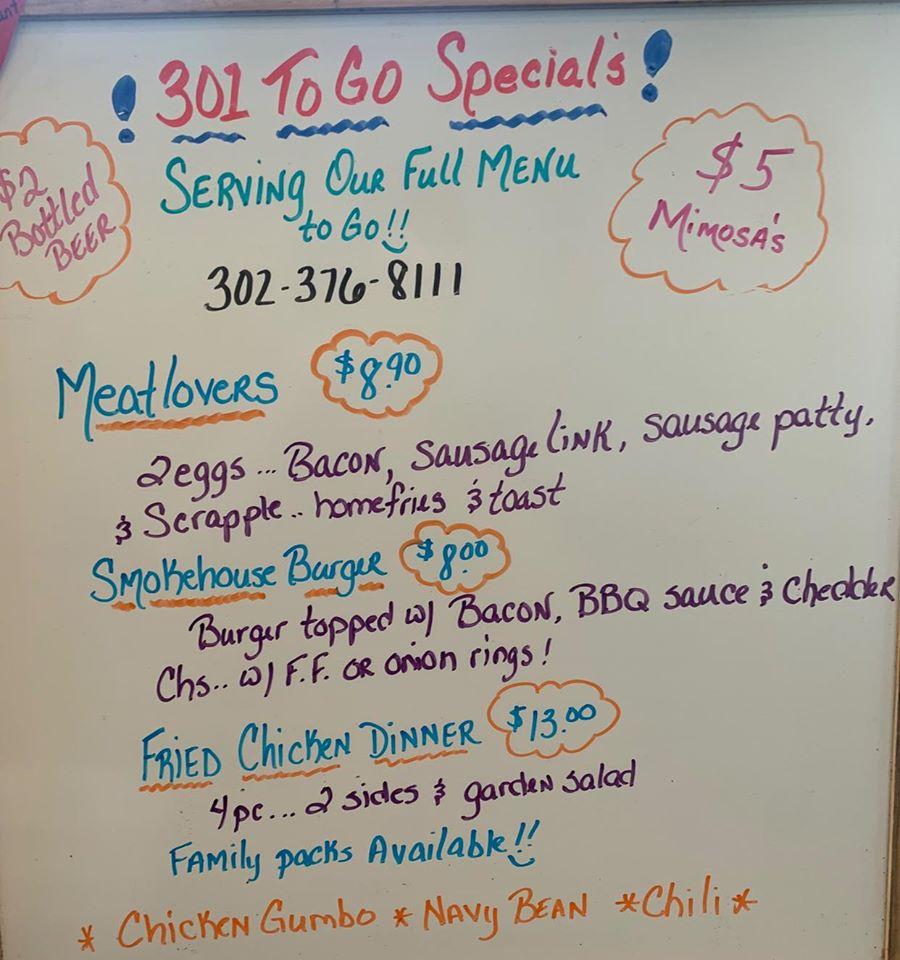 ! 301 To Go Special's !
$2
Bottled
BEER
Serving Our Full Menu
to Go!!
$5
Mimosa's
302-376-8111
Meatlovers $8.90
2 eggs... Bacon, Sausage link, sausage patty,
& Scrapple.. homefries & toast
Smokehouse Burger $8.00
Burger topped w/ Bacon, BBQ sauce & Chedder
Chs.. w/ F.F. or onion rings!
Fried Chicken Dinner $13.00
4pc... 2 sides & garden salad
Family packs Available!!
* Chicken Gumbo * Navy Bean * Chili *